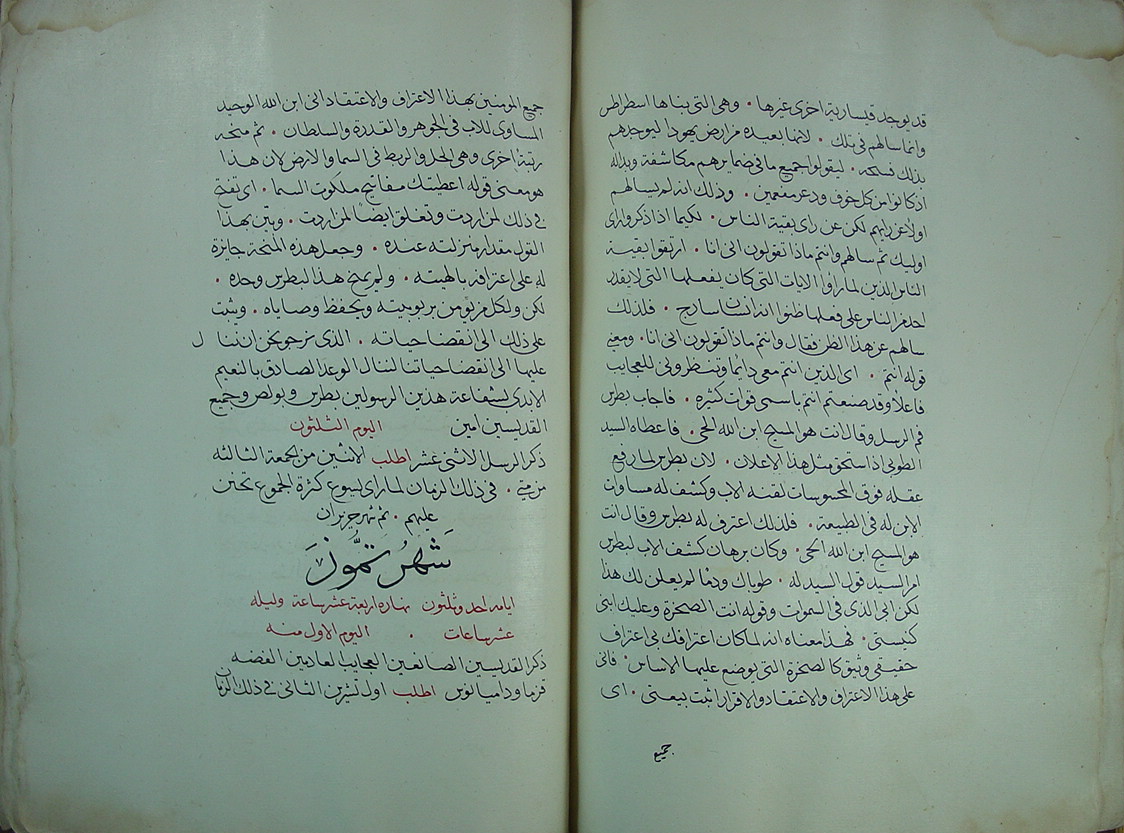 قد يوجد قيسارية اخرى غيرها ٠ وهي التي بناها اسطراطن
وانما سالهم في تلك ٠ لانها بعيده من ارض يهودا ليوجدهم
بذلك فسحه ٠ ليقولوا جميع ما في ضمايرهم مكاشفة وبداله
اذ كانوا من كل خوف ودعر مفعمين ٠ وذلك انه لم يسالهم
اولا عن رايهم لكن عن راى بقية الناس ٠ لكيما اذا ذكروا راى
اوليك ثم سالهم وانتم ماذا تقولون اني انا ٠ ارتقوا بقية
الناس الذين لما راوا الايات التي كان يفعلها التي لا يقدر
احد من الناس على فعلها ظنوا انه انسان سادج ٠ فلذلك
سالهم عن هذا الظن فقال وانتم ماذا تقولون اني انا ٠ ومعني
قوله انتم ٠ اى الذين انتم معي دايما وتنظروني للعجايب
فاعلا وقد صنعتم انتم باسمى قوات كثيره ٠ فاجاب بطرس
فم الرسل وقال انت هو المسيح ابن الله الحي ٠ فاعطاه السيد
الطوبى اذ استحق مثل هذا الاعلان ٠ لان بطرس لما رفع
عقله فوق المحسوسات لقنه الاب وكشف له مساواة
الابن له في الطبيعة ٠ فلذلك اعترف له بطرس وقال انت
هو المسيح ابن الله الحي ٠ وكان برهان كشف الاب لبطرس
امر السيد قول السيد له ٠ طوباك ودما لم يعلن لك هذا
لكن ابي الذى في السموات وقوله انت الصخرة وعليك ابني
كنيستي ٠ فهذا معناه انه لما كان اعترافك بي اعتراف
حقيقي وثيق كالصخرة التي توضع عليها الاساس ٠ فاني
على هذا الاعتراف والاعتقاد والاقرار اثبت بيعتي ٠ اى
جميع
جميع المومنين بهذا الاعتراف والاعتقاد اني ابن الله الوحيد
المساوى للاب في الجوهر والقدرة والسلطان ٠ ثم منحه
رتبة اخرى وهي الحل والربط في السما والارض لان هذا
هو معنى قوله اعطيتك مفاتيح ملكوت السما ٠ اى تفتح
في ذلك لمن اردت وتغلق ايضا لمن اردت ٠ وبين بهذا
القول مقدار منزلته عنده ٠ وجعل هذه المنحة جايزة
له على اعترافه بالهيته ٠ ولم يمنح هذا لبطرس وحده ٠
لكن ولكل من يؤمن بربوبيته ويحفظ وصاياه ٠ ويثبت
على ذلك الى انقضا حياته ٠ الذى نرجو يكن اننا ل
عليها الى انقضا حياتنا لننال الوعد الصادق بالنعيم
الابدى بشفاعة هذين الرسولين بطرس وبولص وجميع
القديسين امين اليوم الثلثون
ذكر الرسل الاثنى عشر اطلب الاثنين من الجمعة الثالثه
من متى ٠ في ذلك الزمان لما راى ليسوع كثرة الجموع تحنن
عليهم ٠ تم شهر حزيران
شهر تموز
ايامه احد وثلثون نهاره اربعة عشر ساعة وليله
عشر ساعات ٠ اليوم الاول منه
ذكر القديسين الصانعين العجايب العادمين الفضه
قزما وداميانوس اطلب اول تشرين الثاني في ذلك الزمان